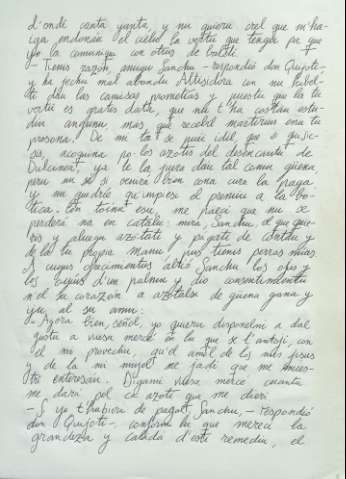 d'ondi canta yanta, y nu quieru crel que m'ha-
iga endonau el cielu la vertú que tengu pa que
yo la comuniqui con otrus de bóbilis
- Tienis razón, amigu Sanchu - respondió don Quijoti -
y ha jechu mal abondu Altisidora con nu habel-
ti dau las camisas prometías y puestu que la tu
vertú es gratis data, que nu t'ha costáu estu-
diu angunu, mas que recebil martirius ena tu
presona. De mí ti sé puié idil, que si quisie-
as, acoquina po los azotis del desencantu de
Dulcinea, ya te la juera dau tal comu güena
peru nu sé si vendrá bien cona cura la paga
y nu quedría qu'impiesi el premiu a la bo-
tica. Con toíntu esu, me paeci que nu se
perderá na en catalu: mira, Sanchu, el que quie-
ris y aluegu azótati y págati de contáu y
de la tu propia manu, pus tienis perras mías.
A cuyus ofrecimientus abrió Sanchu los ojus y
los oíus d'un palmu y dio consentimientu
n'el su corazón a azotalsi de güena gana y
iyu al su amu:
- Agora bien, señol, yo quieru disponelmi a dal
gustu a vuesa mercé en lu que se l'antoji, con
el mi provechu, qu'el amol de los mis jijus
y de la mi mujel me jadi que me muess-
tri enteresáu. Dígami vuesa mercé cuantu
me dará pol ca azoti que me dieri
- Si yo t'hubiera de pagal, Sanchu, - respondió
don Quijoti -, conformi lu que mereci la
grandeza y calidá d'esti remediu, el